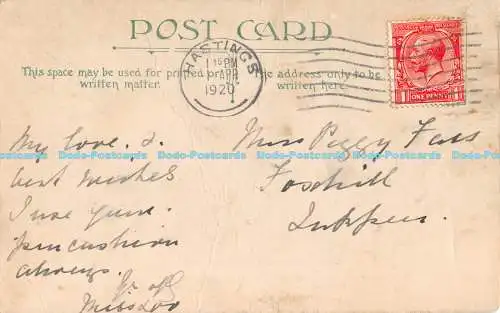 POST CARD
This space may be used for printed or
written matter.
The address only to be
written here.
HASTINGS
1 15 PM
APR
1920
ONE PENNY
My love &
best wishes
I use your
pincushion
always.
Miss Peggy
Foxhill
Inkpen
Dodo-Postcards Dodo-Postcards Dodo-Postcards Dodo-Postcards Dodo-Postcards